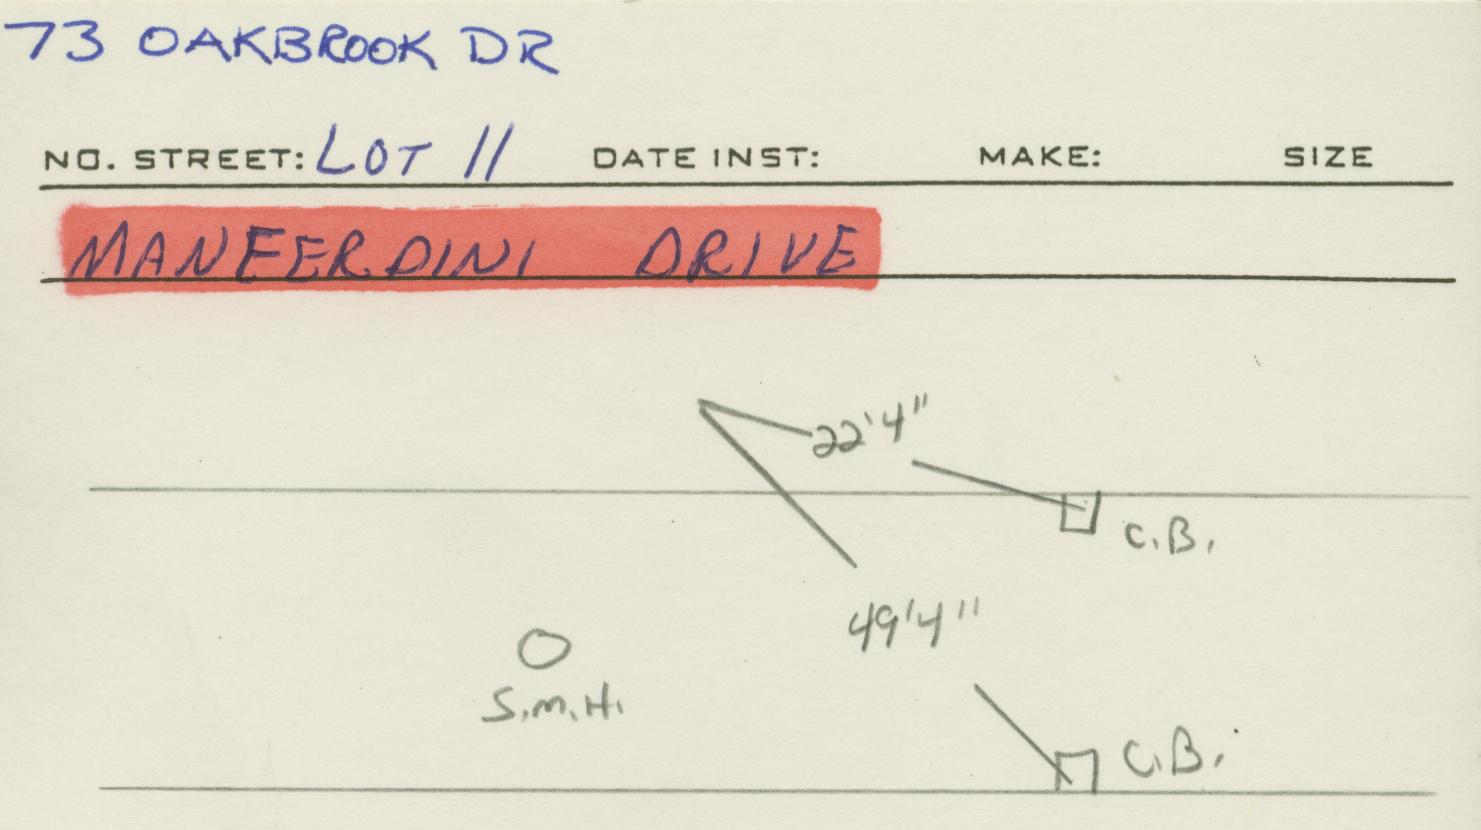 73 OAKBROOK DR
NO. STREET: LOT 11 DATE INST: MAKE: SIZE
MANFERDINI DRIVE
22'4"
C.B.
49'4"
S.M.H.
C.B.